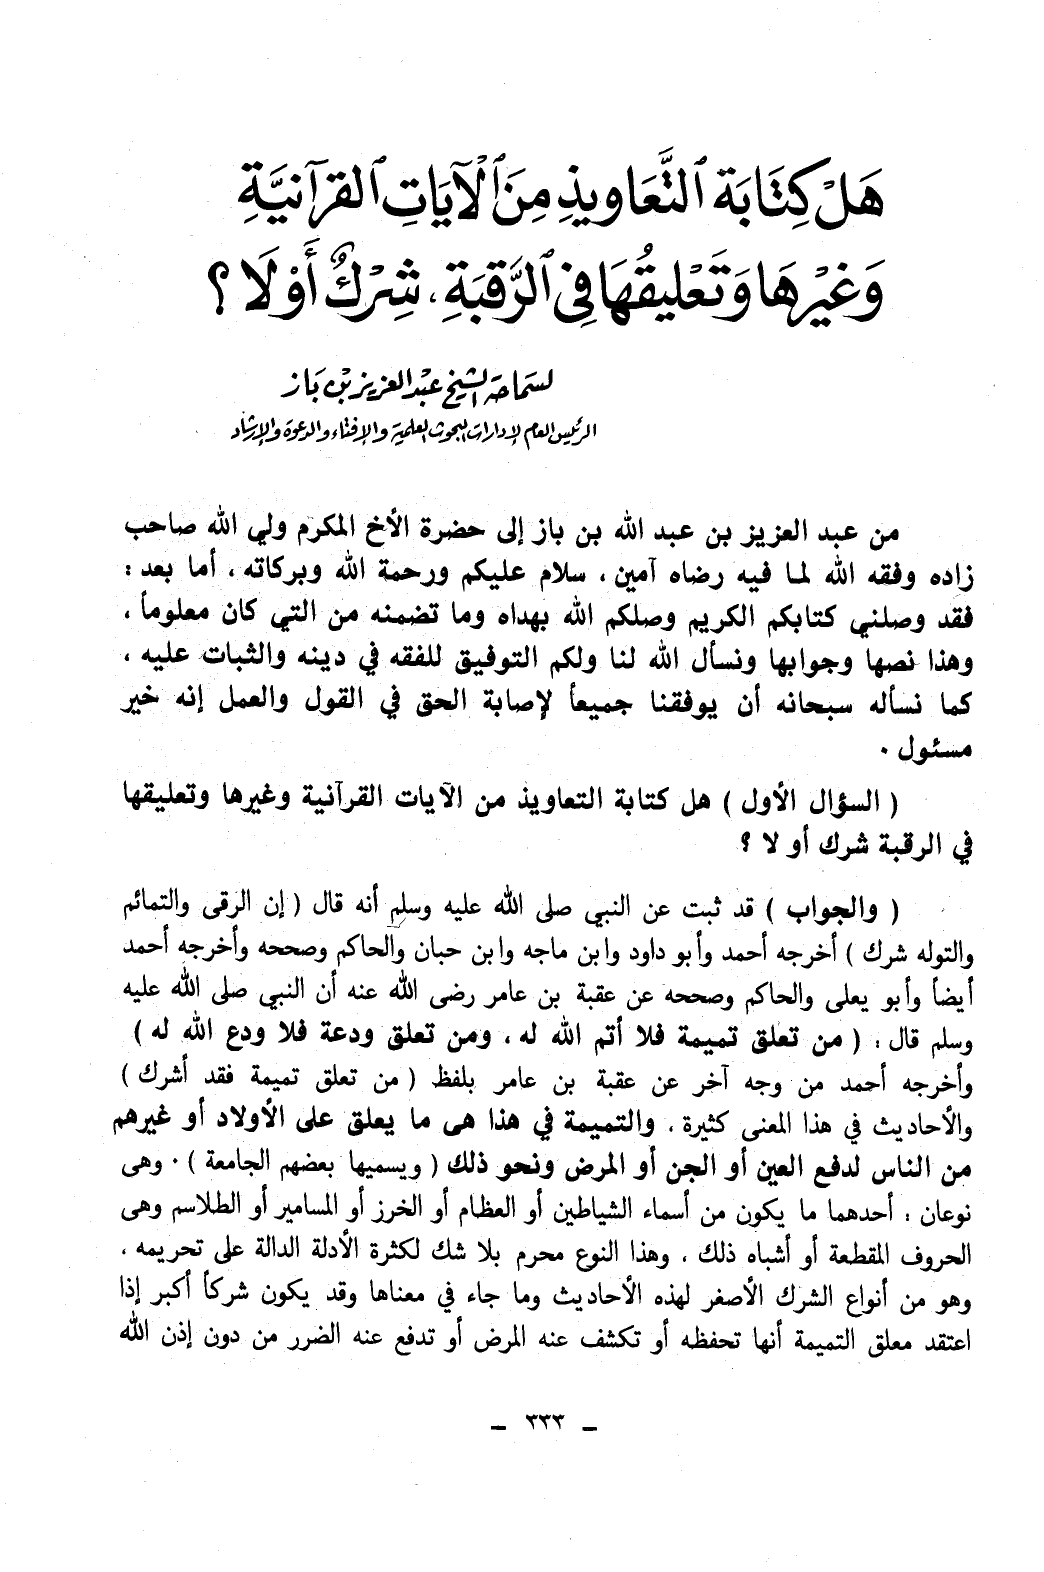 هَلْ كِتَابَة ٱلتَّعَاوِيذِ مِنَ ٱلْآيَاتِ ٱلقرآنيَّةِ
وَغيْرِهَا وَتَعْلِيقُهَا فِي ٱلرَّقبَةِ، شِرْكٌ أَوْ لَا ؟
لسماحة الشيخ عبد العزيز بن باز
الرئيس العام لإدارات البحوث العلمية والإفتاء والدعوة والإرشاد
من عبد العزيز بن عبد الله بن باز إلى حضرة الأخ المكرم ولي الله صاحب
زاده وفقه الله لما فيه رضاه آمين ، سلام عليكم ورحمة الله وبركاته ، أما بعد :
فقد وصلني كتابكم الكريم وصلكم الله بهداه وما تضمنه من التي كان معلوماً ،
وهذا نصها وجوابها ونسأل الله لنا ولكم التوفيق للفقه في دينه والثبات عليه ،
كما نسأله سبحانه أن يوفقنا جميعاً لإصابة الحق في القول والعمل إنه خير
مسئول .
( السؤال الأول ) هل كتابة التعاويذ من الآيات القرآنية وغيرها وتعليقها
في الرقبة شرك أو لا ؟
( والجواب ) قد ثبت عن النبي صلى الله عليه وسلم أنه قال ( إن الرقى والتمائم
والتوله شرك ) أخرجه أحمد وأبو داود وابن ماجه وابن حبان والحاكم وصححه وأخرجه أحمد
أيضاً وأبو يعلى والحاكم وصححه عن عقبة بن عامر رضى الله عنه أن النبي صلى الله عليه
وسلم قال : ( من تعلق تميمة فلا أتم الله له ، ومن تعلق ودعة فلا ودع الله له )
وأخرجه أحمد من وجه آخر عن عقبة بن عامر بلفظ ( من تعلق تميمة فقد أشرك )
والأحاديث في هذا المعنى كثيرة ، والتميمة في هذا هى ما يعلق على الأولاد أو غيرهم
من الناس لدفع العين أو الجن أو المرض ونحو ذلك ( ويسميها بعضهم الجامعة ) . وهى
نوعان : أحدهما ما يكون من أسماء الشياطين أو العظام أو الخرز أو المسامير أو الطلاسم وهى
الحروف المقطعة أو أشباه ذلك ، وهذا النوع محرم بلا شك لكثرة الأدلة الدالة على تحريمه ،
وهو من أنواع الشرك الأصغر لهذه الأحاديث وما جاء في معناها وقد يكون شركاً أكبر إذا
اعتقد معلق التميمة أنها تحفظه أو تكشف عنه المرض أو تدفع عنه الضرر من دون إذن الله
ـ ٣٣٣ ـ